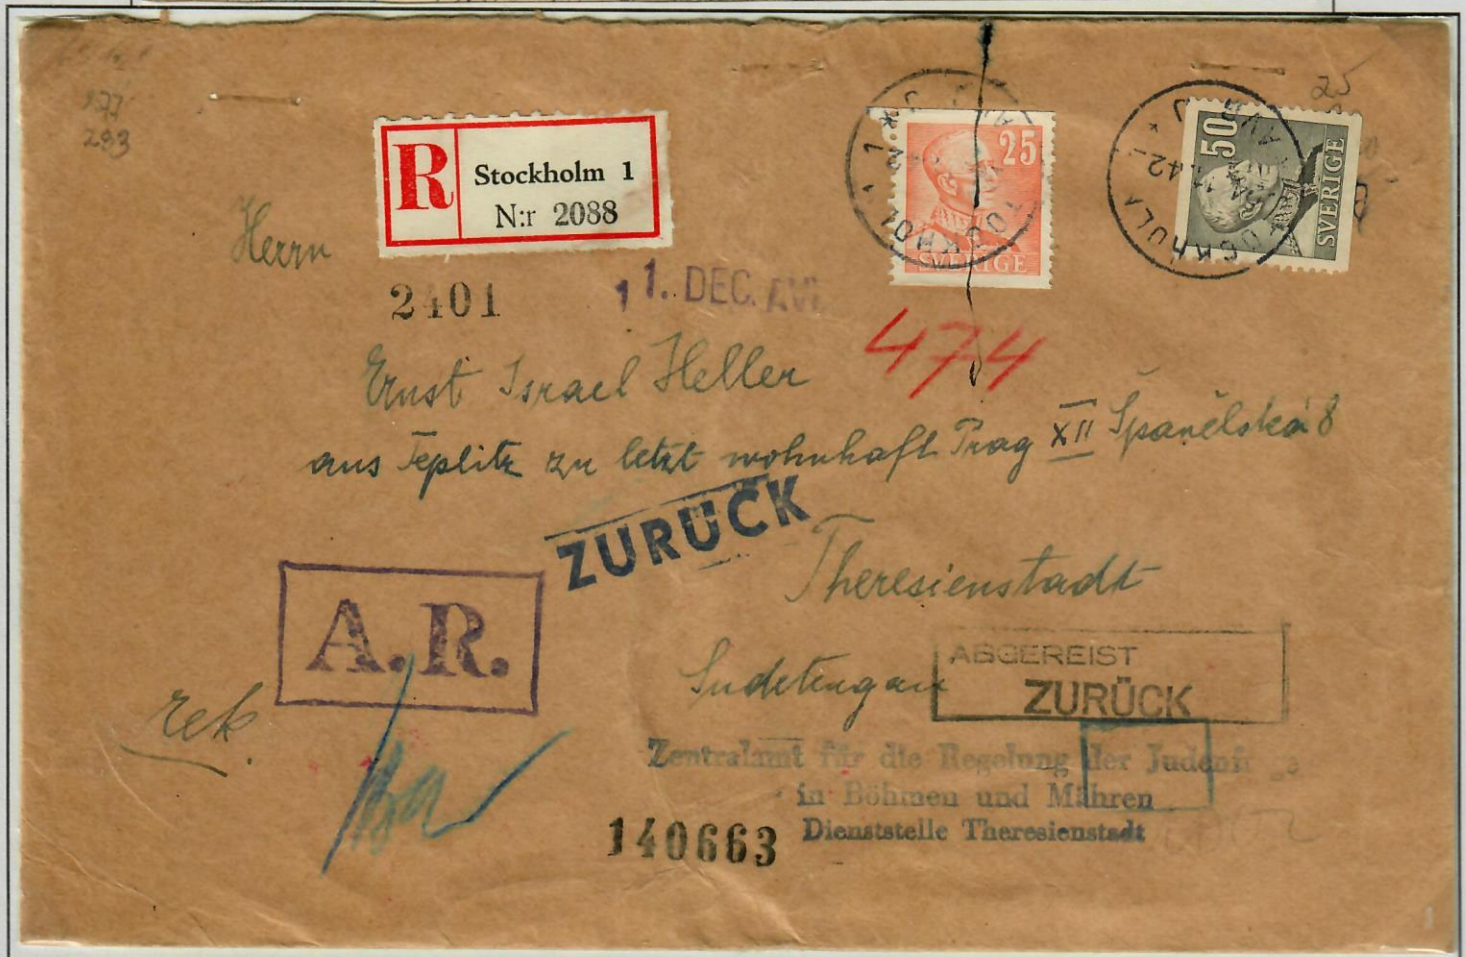 177
293
R Stockholm 1
N:r 2088
25
SVERIGE
50
SVERIGE
25
Herrn
2401
11. DEC.
474
Ernst Israel Heller
aus Teplitz zu letzt wohnhaft Prag XII Španělská 8
ZURÜCK
Theresienstadt
A.R.
Sudetengau
ABGEREIST
ZURÜCK
rek.
Zentralamt für die Regelung der Judenfrage
in Böhmen und Mähren
Dienststelle Theresienstadt
140663